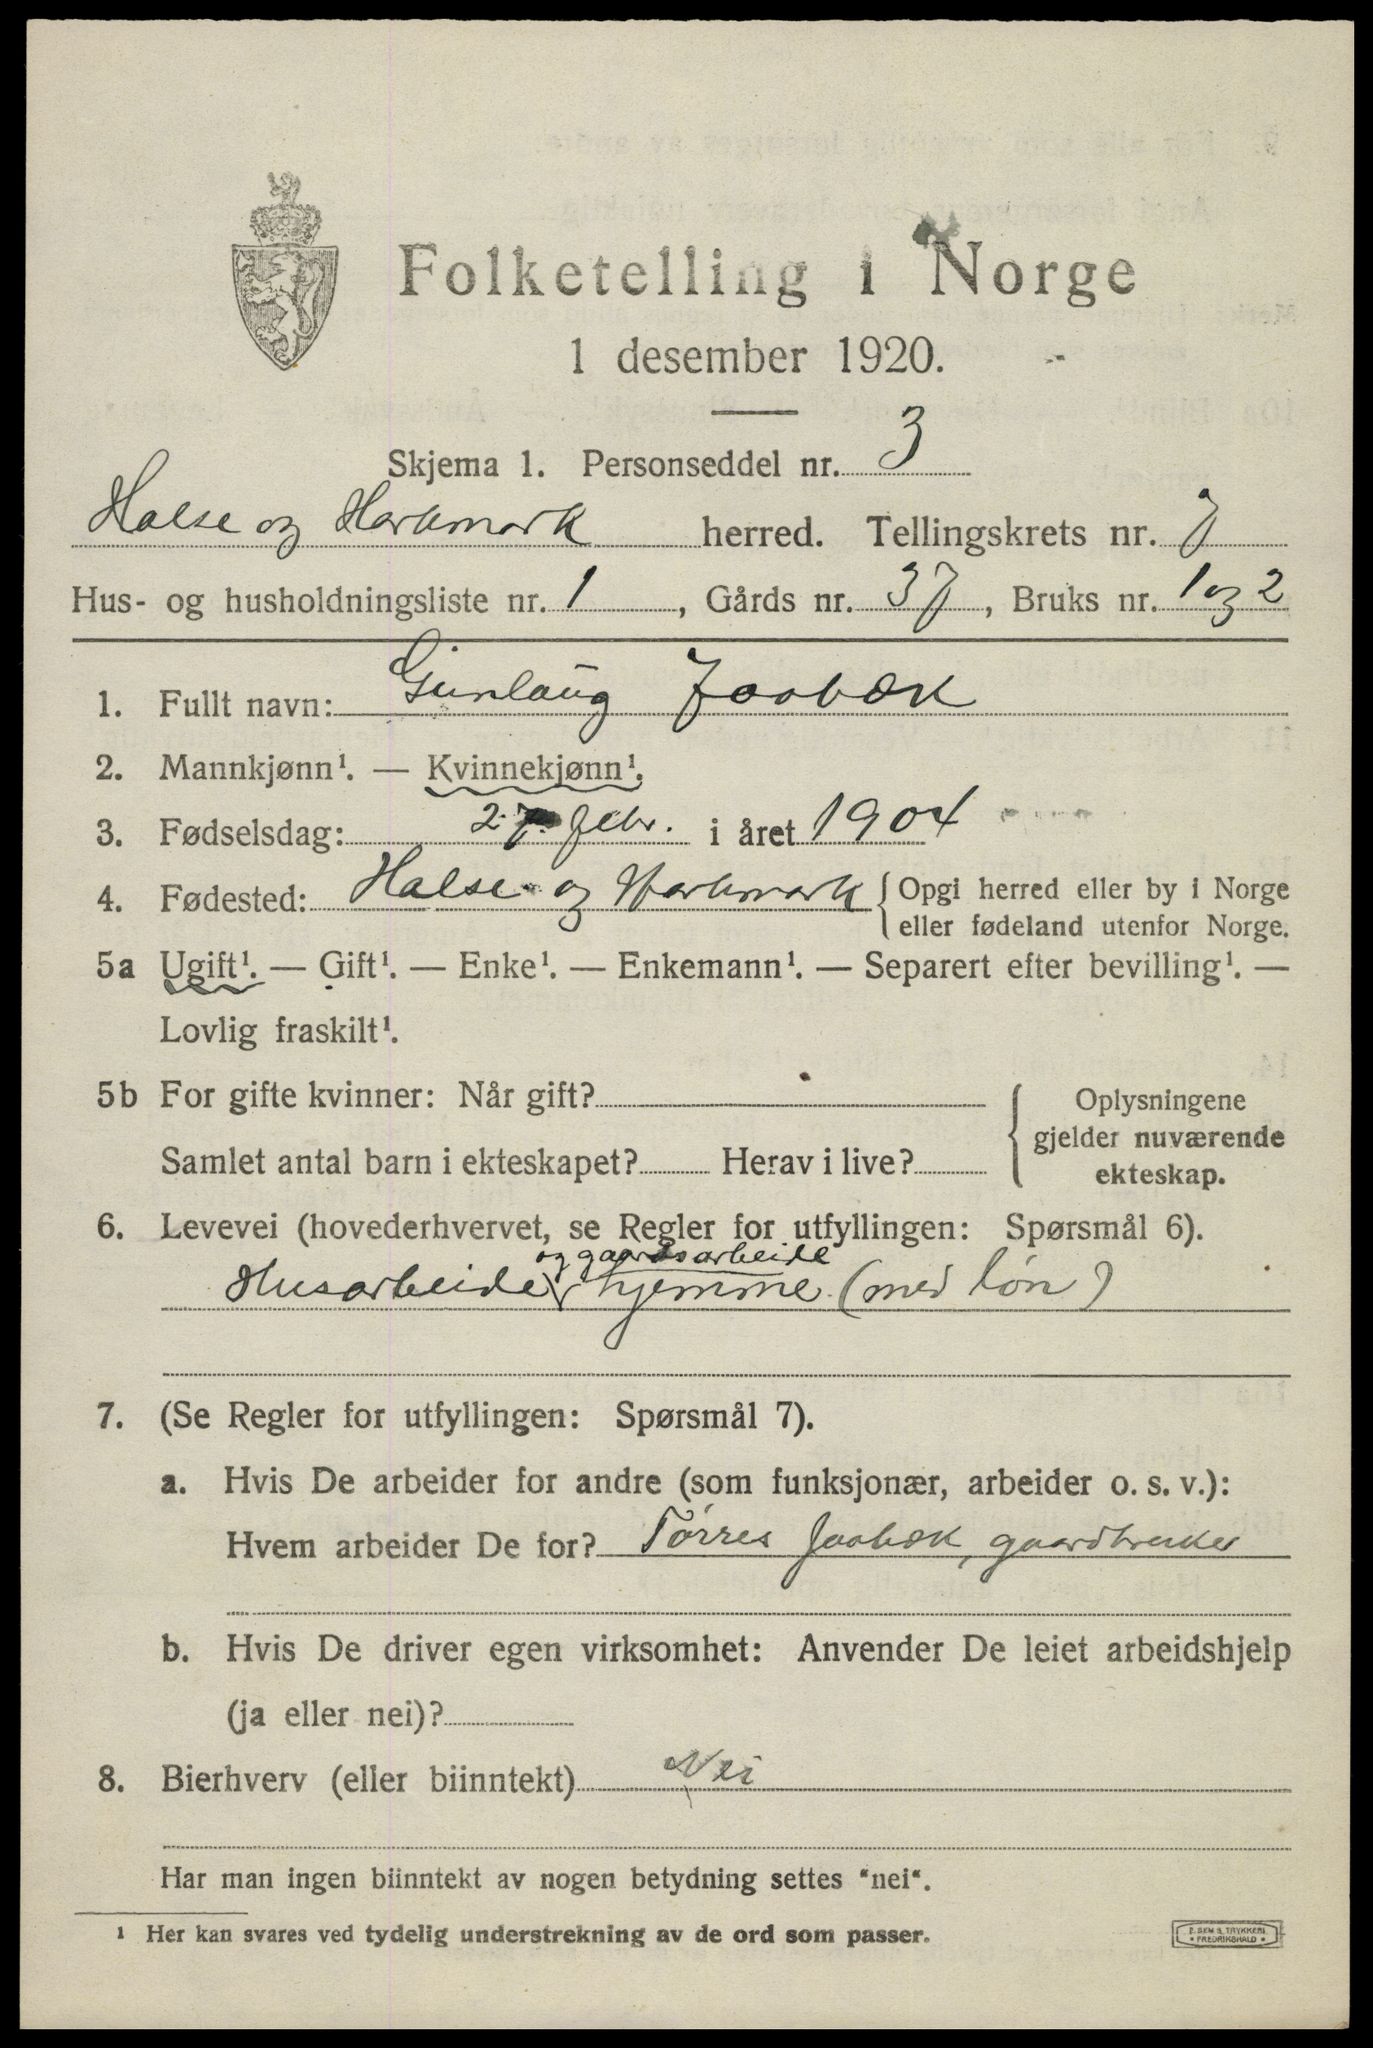 Folketelling i Norge
1 desember 1920.
Skjema 1. Personseddel nr. 3
Halse og Harkmark herred. Tellingskrets nr. 7
Hus- og husholdningsliste nr. 1, Gårds nr. 37, Bruks nr. 1 og 2
1. Fullt navn: Gunlaug Jaabæk
2. Mannkjønn¹. — Kvinnekjønn¹.
3. Fødselsdag: 27. febr. i året 1904
4. Fødested: Halse og Harkmark { Opgi herred eller by i Norge
eller fødeland utenfor Norge.
5a Ugift¹. — Gift¹. — Enke¹. — Enkemann¹. — Separert efter bevilling¹. —
Lovlig fraskilt¹.
5b For gifte kvinner: Når gift? { Oplysningene
gjelder nuværende
Samlet antal barn i ekteskapet? Herav i live? ekteskap.
6. Levevei (hovederhvervet, se Regler for utfyllingen: Spørsmål 6).
og gaardsarbeide
Husarbeide hjemme (med løn)
7. (Se Regler for utfyllingen: Spørsmål 7).
a. Hvis De arbeider for andre (som funksjonær, arbeider o. s. v.):
Hvem arbeider De for? Tørres Jaabæk, gaardbruker
b. Hvis De driver egen virksomhet: Anvender De leiet arbeidshjelp
(ja eller nei)?
8. Bierhverv (eller biinntekt) Nei
Har man ingen biinntekt av nogen betydning settes "nei".
¹ Her kan svares ved tydelig understrekning av de ord som passer.
E. SEM'S TRYKKERI
FREDRIKSHALD